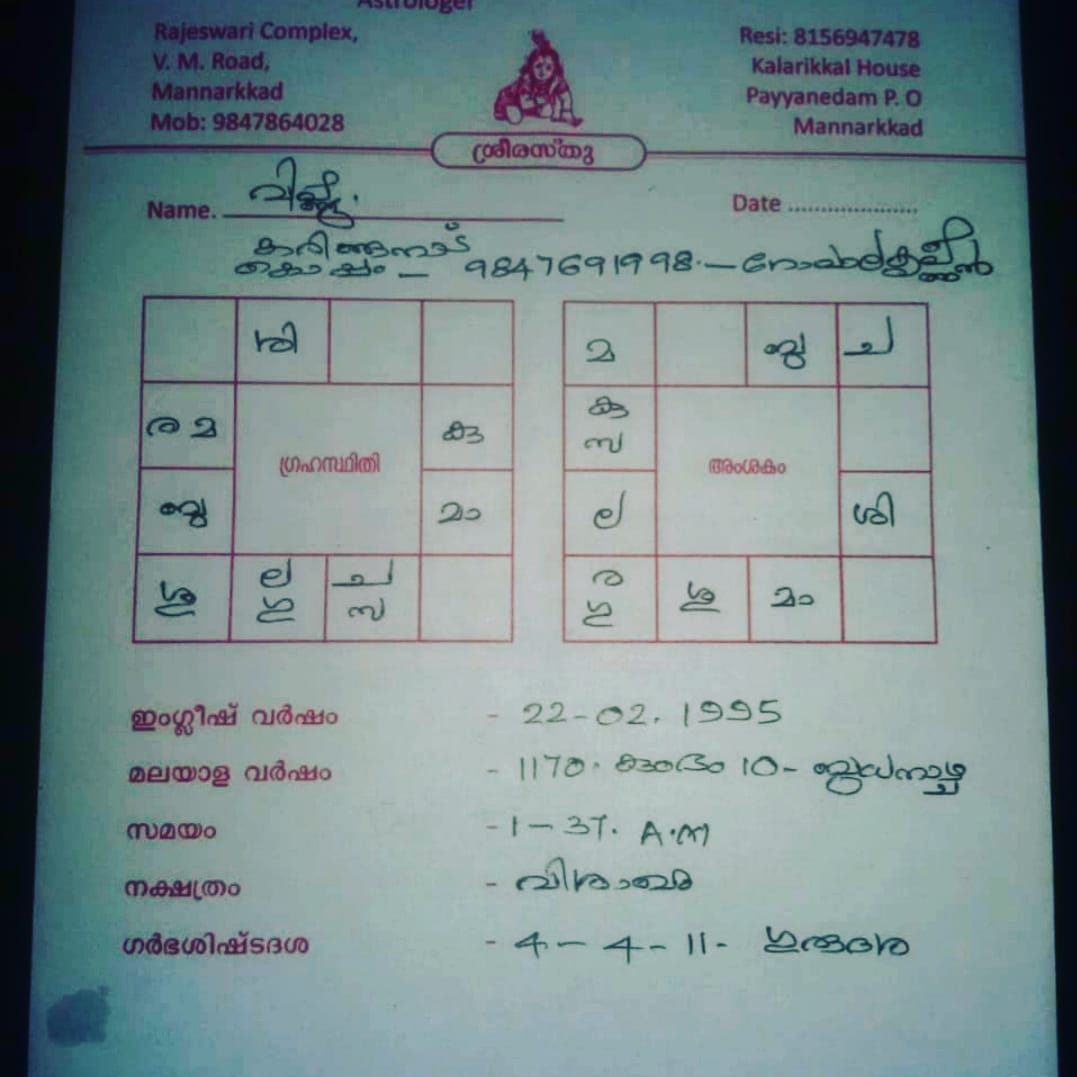 Astrologer
Rajeswari Complex,
V. M. Road,
Mannarkkad
Mob: 9847864028
Resi: 8156947478
Kalarikkal House
Payyanedam P. O
Mannarkkad
ശ്രീരസ്തു
Name.
Date ....................
9847691998.
ശി
ര മ
കു
ബു
മാ
ശു
ല
ഗു
ച
സ
ഗ്രഹസ്ഥിതി
മ
ബു
ച
കു
സ
ല
ശി
ര
ഗു
ശു
മാ
അംശകം
ഇംഗ്ലീഷ് വർഷം - 22-02.1995
മലയാള വർഷം - 1170. കുംഭം 10- ബുധനാഴ്ച
സമയം - 1-37. A.M
നക്ഷത്രം - വിശാഖം
ഗർഭശിഷ്ടദശ - 4-4-11- ഗുരുദശ